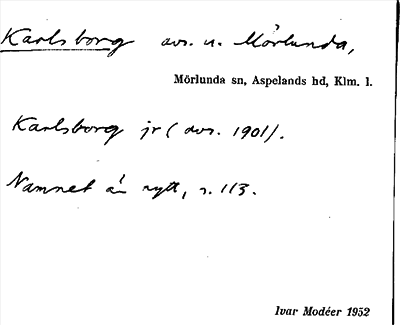 Karlsborg avs. u. Mörlunda,
Mörlunda sn, Aspelands hd, Klm. l.
Karlsborg jr (avs. 1901).
Namnet är nytt, s. 113.
Ivar Modéer 1952